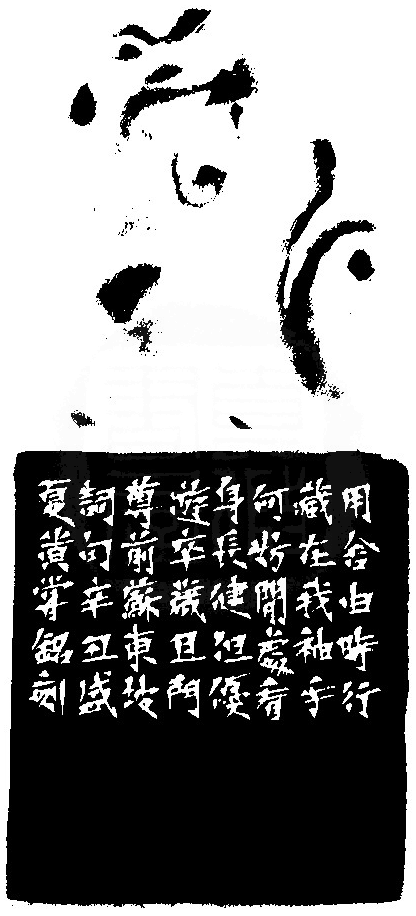 用舍由時行
藏在我袖手
何妨閒處看
身長健但優
遊卒歲且鬥
尊前蘇東坡
詞句辛丑盛
夏黃銘刻